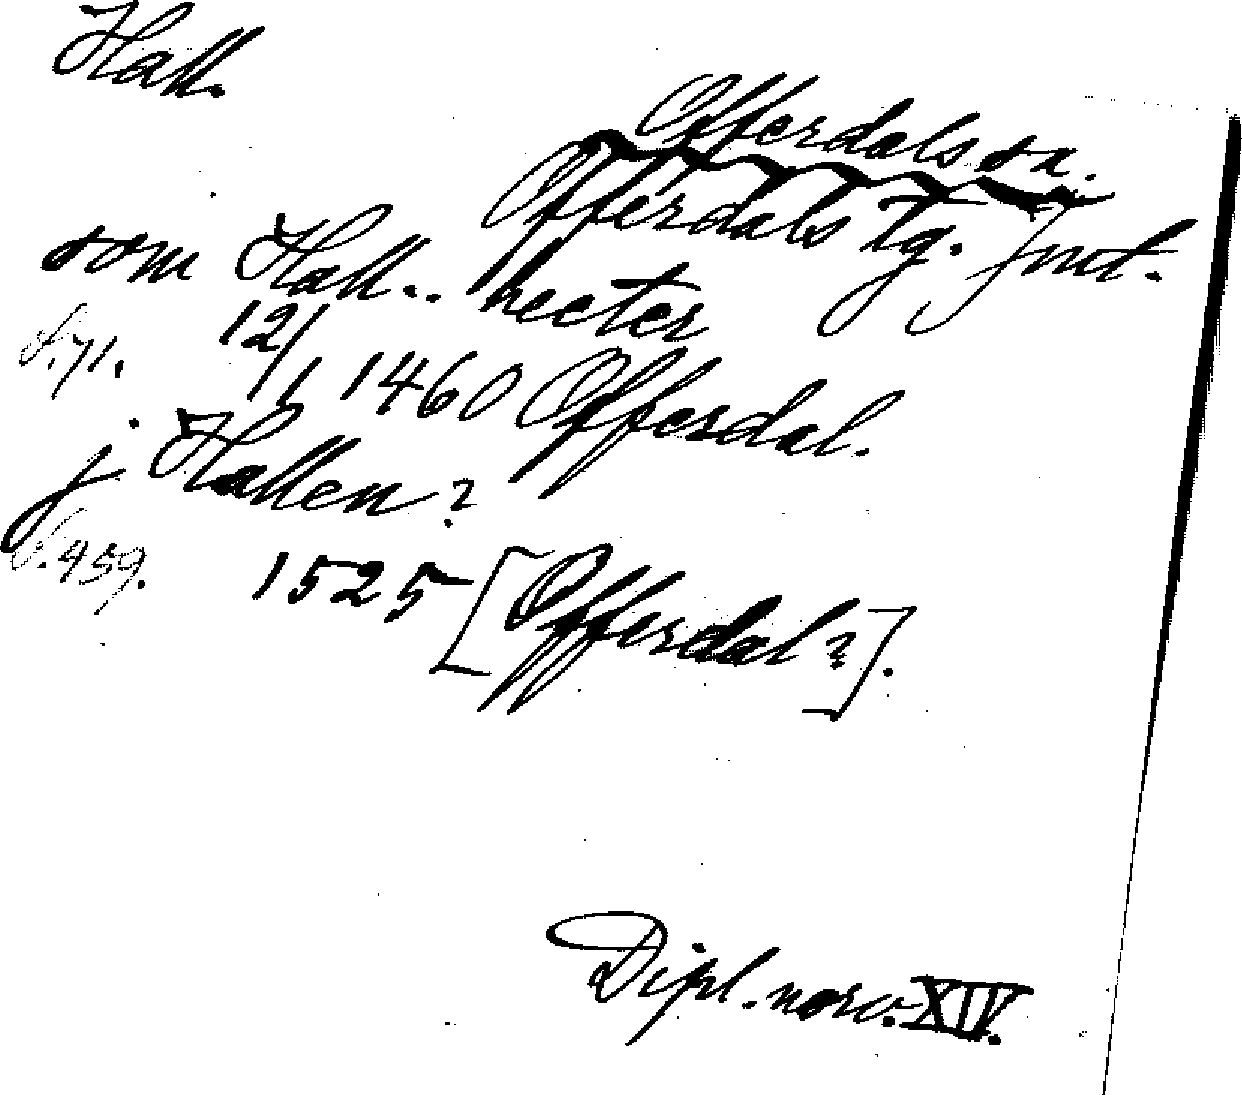 Hall.
Offerdals sn.
Offerdals tg. Jmt.
som Hall.. heeter
S. 71. 12/1 1460 Offerdal.
j Hallen?
S. 459. 1525 [Offerdal?].
Dipl. norv. XIV.